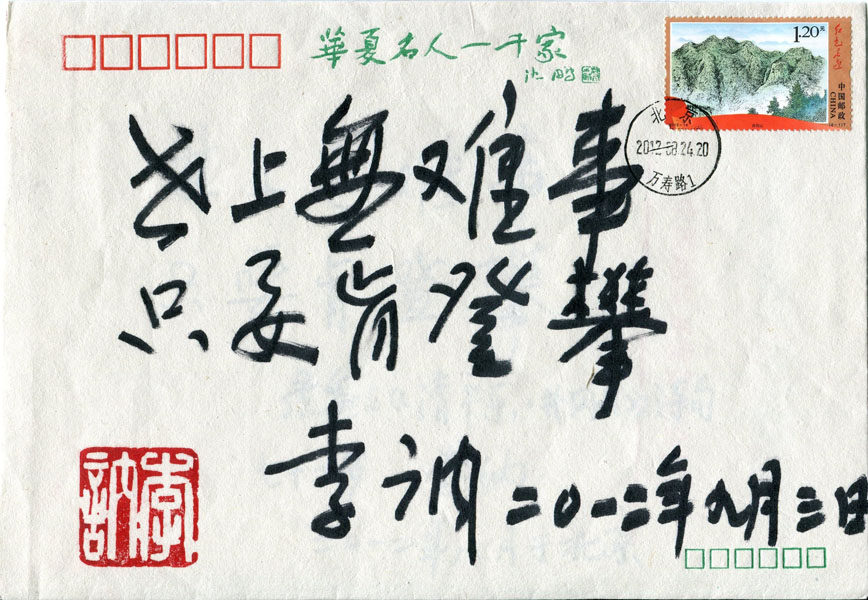 華夏名人一千家
沈鹏
1.20元
中国邮政
CHINA
北京
2012.08.24.20
万寿路1
世上無难事
只要肯登攀
李讷 二〇一二年九月三日
李訥